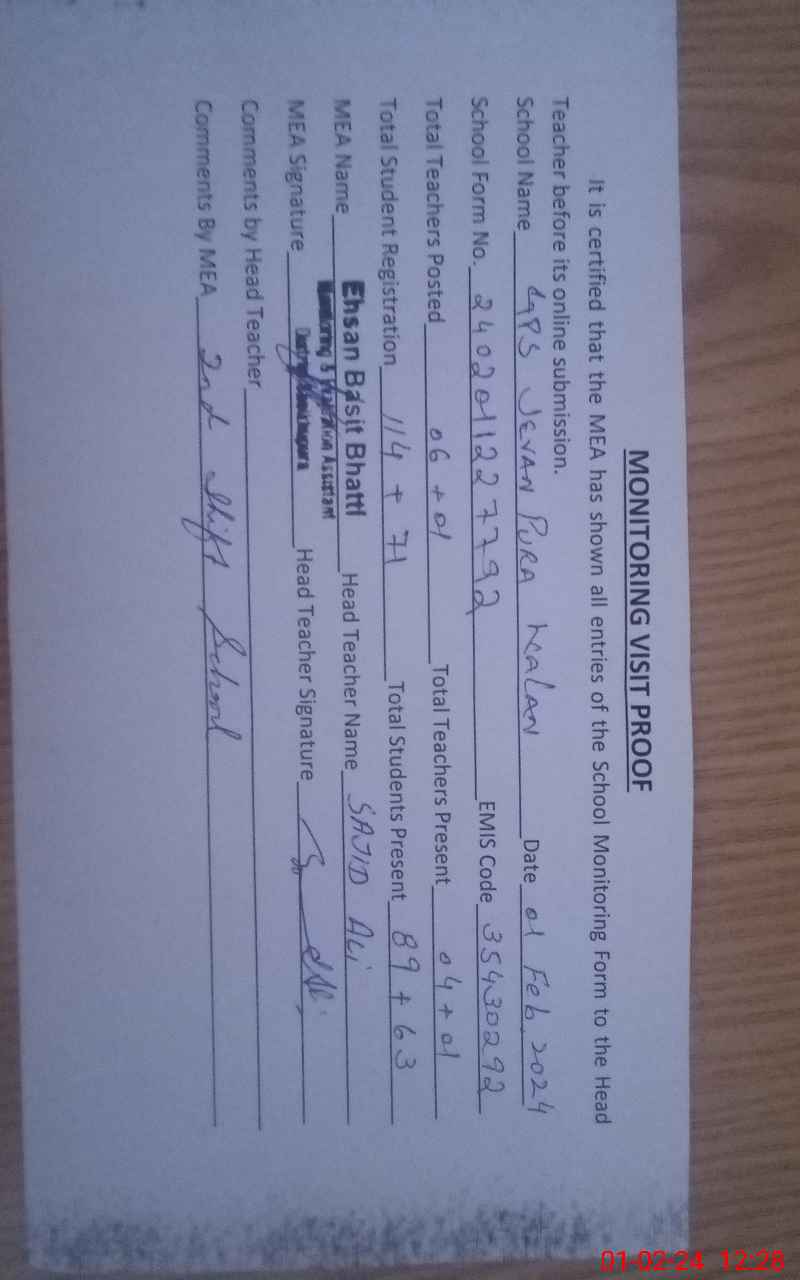 MONITORING VISIT PROOF
It is certified that the MEA has shown all entries of the School Monitoring Form to the Head
Teacher before its online submission.
School Name GPS JEVAN PURA KALAN Date 01 Feb. 2024
School Form No. 240201122 7792 EMIS Code 35430292
Total Teachers Posted 06 + 01 Total Teachers Present 04 + 01
Total Student Registration 114 + 71 Total Students Present 89 + 63
MEA Name Ehsan Basit Bhatti Head Teacher Name SAJID ALi
Monitoring & Assistant
MEA Signature Head Teacher Signature
Comments by Head Teacher
Comments By MEA 2nd Shift School
01-02-24 12:28